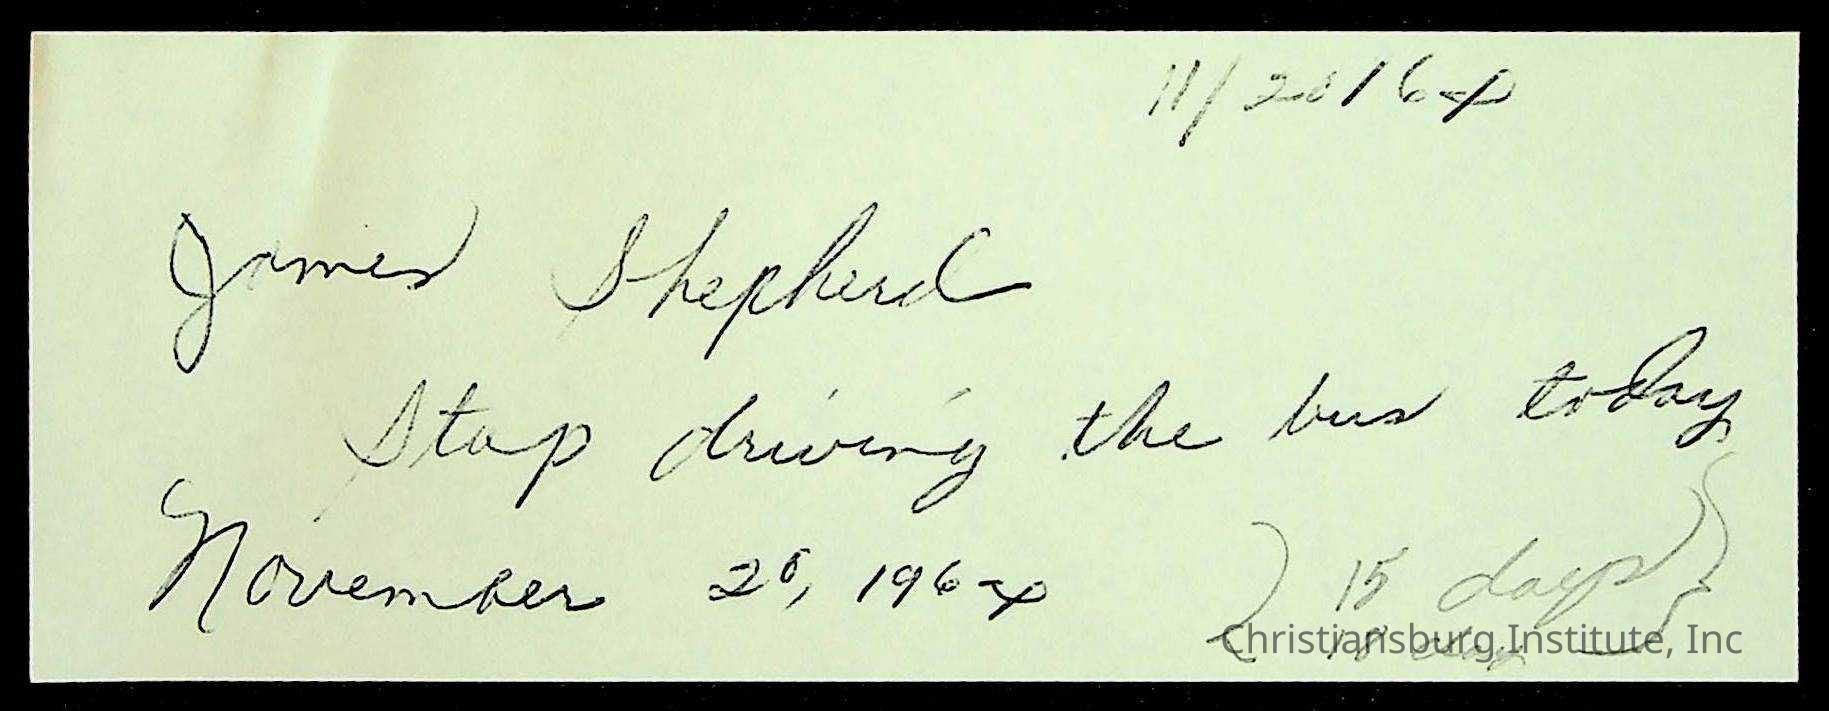 11/20/64
James Shepherd
Stop driving the bus today
November 20, 1964
15 days
18 days
Christiansburg Institute, Inc